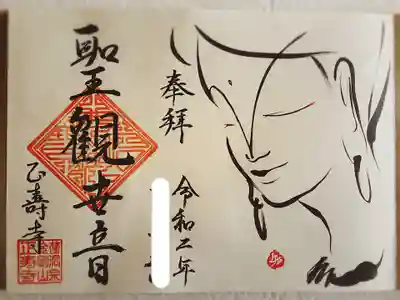 奉拝
令和二年
聖觀世音
乙壽寺